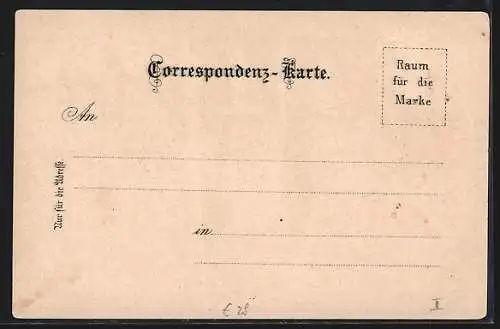 Correspondenz-Karte.
Raum
für die
Marke
An
Nur für die Adresse.
in
€ 28
II